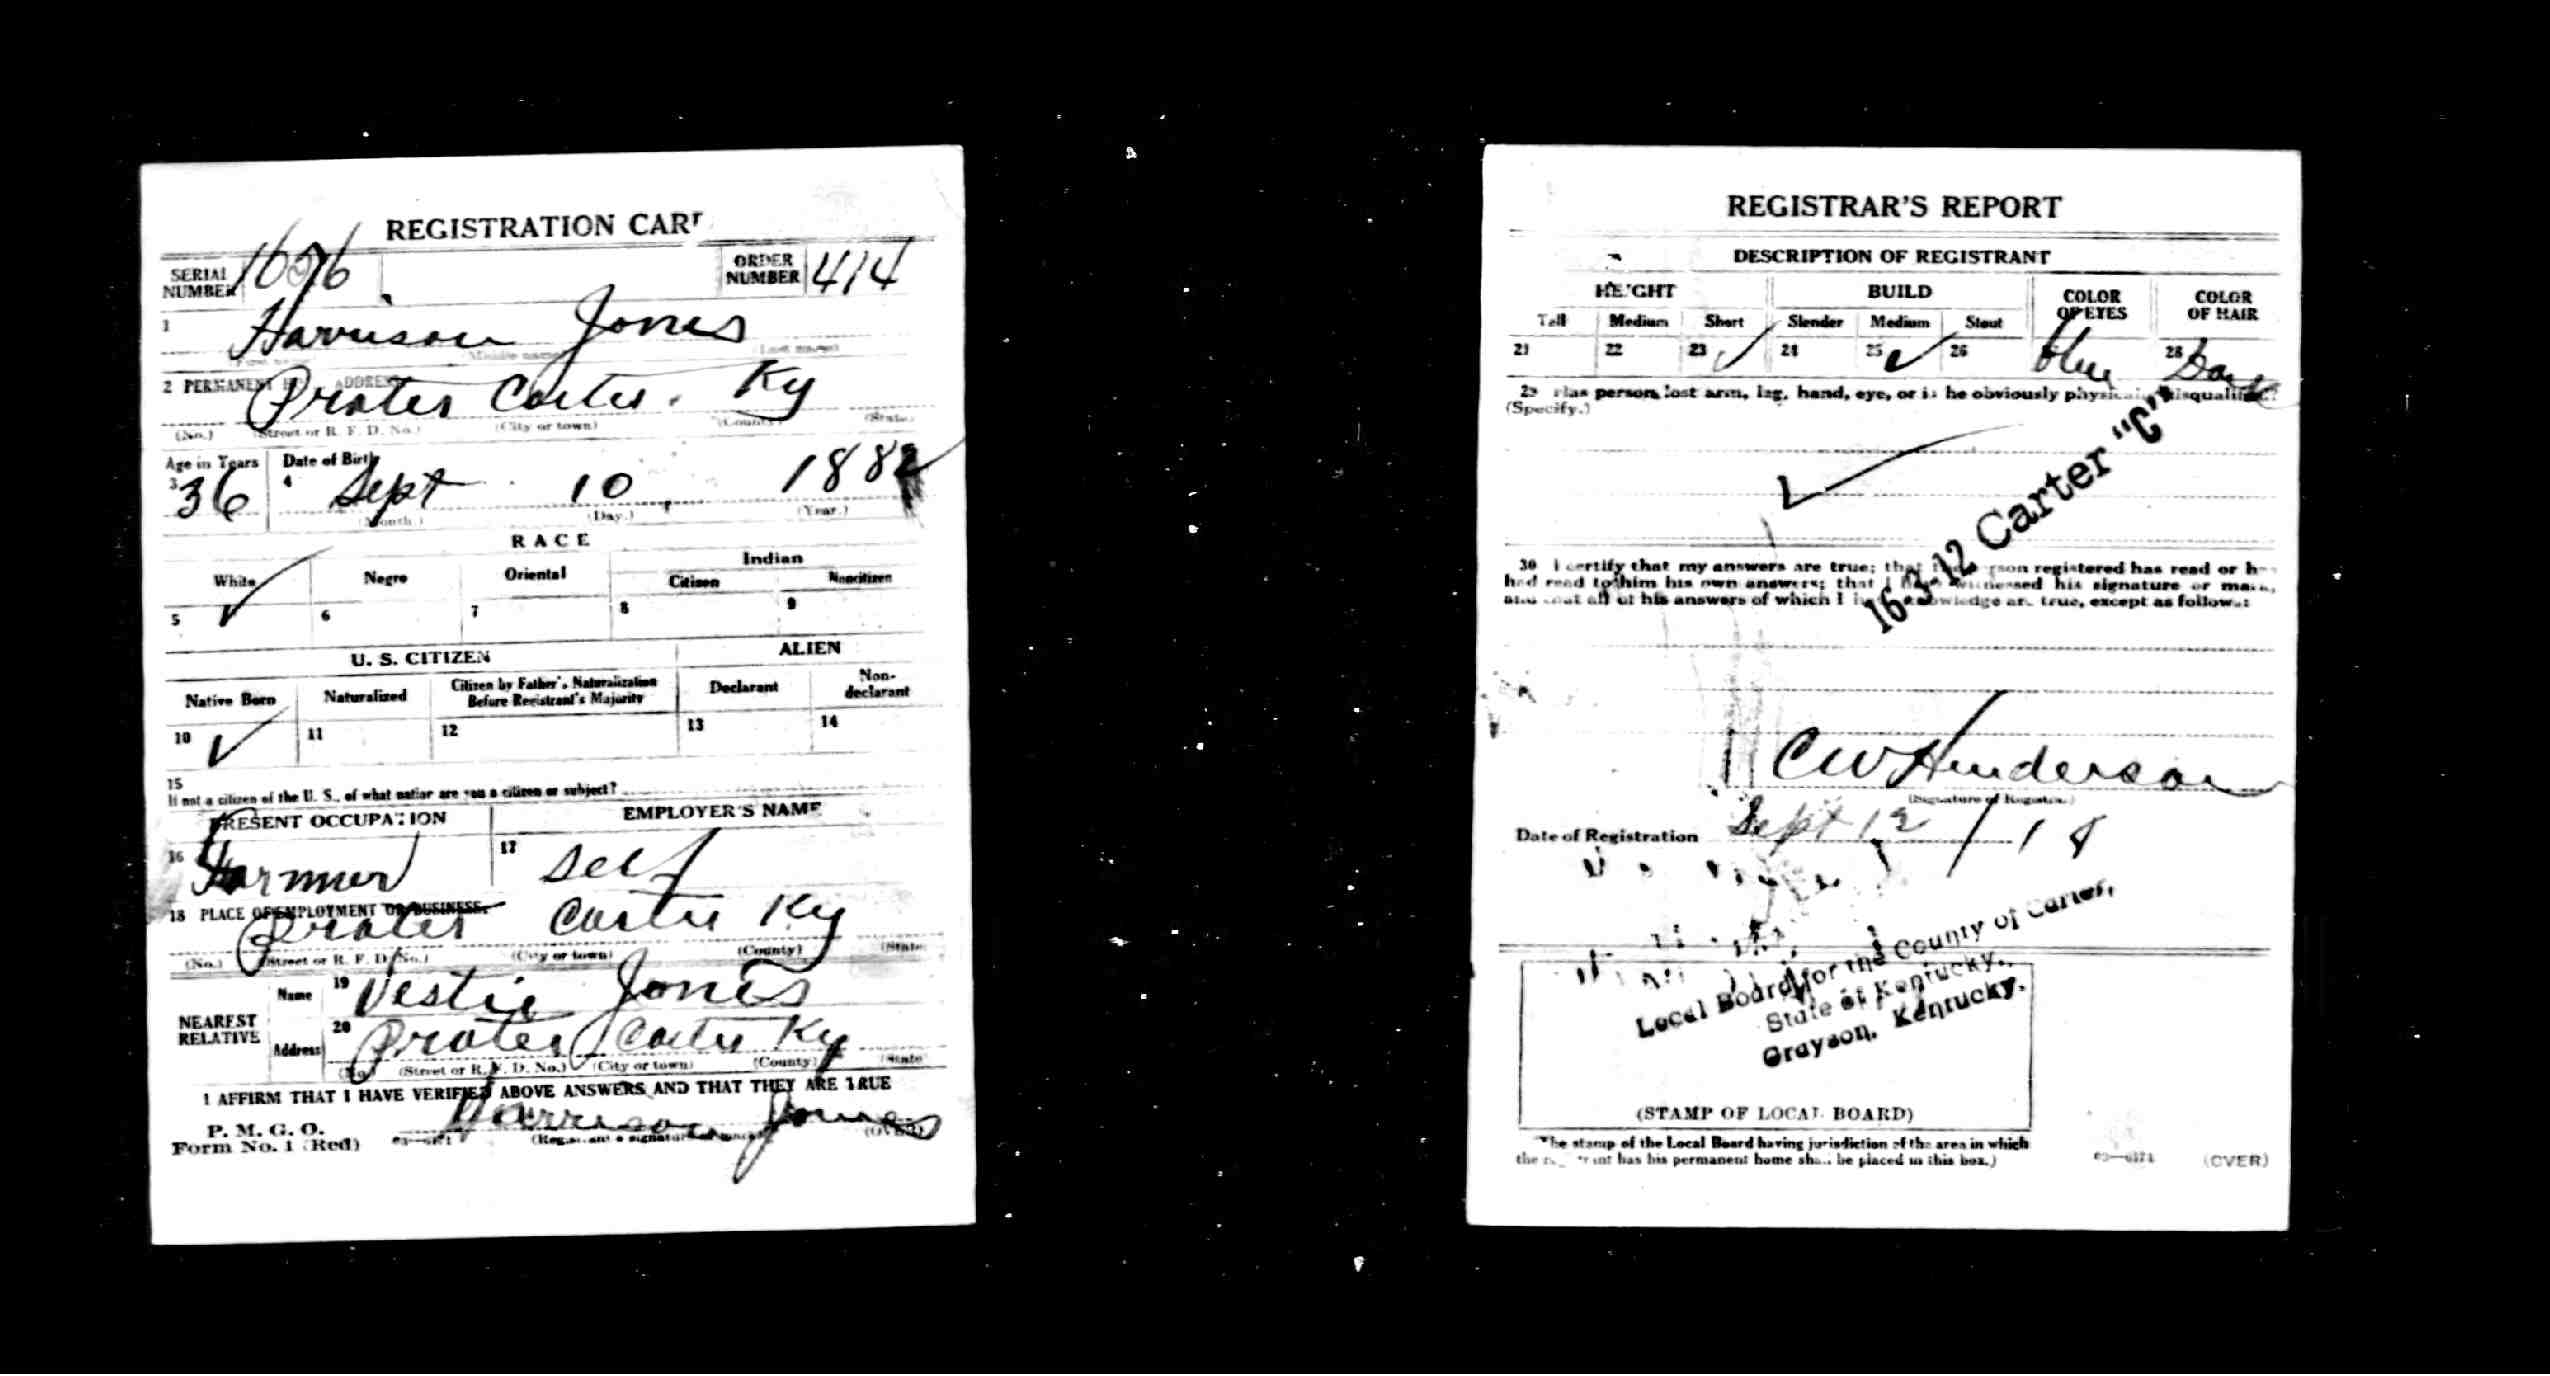 REGISTRATION CAR
SERIAL NUMBER 1696 ORDER NUMBER 414
1 Harrison Jones
(Middle name) (Last name)
2 PERMANENT ADDRESS
Prater Carter Ky
(No.) (Street or R. F. D. No.) (City or town) (County) (State)
Age in Years Date of Birth
3 36 4 Sept 10 1882
(Month.) (Day.) (Year.)
RACE
White Negro Oriental Indian
Citizen Noncitizen
5 ✓ 6 7 8 9
U. S. CITIZEN ALIEN
Native Born Naturalized Citizen by Father's Naturalization Before Registrant's Majority Declarant Non-declarant
10 ✓ 11 12 13 14
15
If not a citizen of the U. S., of what nation are you a citizen or subject?
PRESENT OCCUPATION EMPLOYER'S NAME
16 Farmer 17 Self
18 PLACE OF EMPLOYMENT OR BUSINESS.
Prater Carter Ky
(No.) (Street or R. F. D. No.) (City or town) (County) (State)
NEAREST RELATIVE
Name 19 Vestie Jones
Address 20 Prater Carter Ky
(No.) (Street or R. F. D. No.) (City or town) (County) (State)
I AFFIRM THAT I HAVE VERIFIED ABOVE ANSWERS AND THAT THEY ARE TRUE
P. M. G. O.
Form No. 1 (Red) Harrison Jones
(Registrant's signature or mark) (OVER)
REGISTRAR'S REPORT
DESCRIPTION OF REGISTRANT
HEIGHT BUILD COLOR OF EYES COLOR OF HAIR
Tall Medium Short Slender Medium Stout
21 22 23 ✓ 24 25 ✓ 26 blue 28 Dark
29 Has person lost arm, leg, hand, eye, or is he obviously physically disqualified?
(Specify.)
16-3-12 Carter "C"
30 I certify that my answers are true; that the person registered has read or has
had read to him his own answers; that I have witnessed his signature or mark,
and that all of his answers of which I have knowledge are true, except as follows:
C W Henderson
(Signature of Registrar)
Date of Registration Sept 12 / 18
Local Board for the County of Carter,
State of Kentucky.
Grayson, Kentucky.
(STAMP OF LOCAL BOARD)
(The stamp of the Local Board having jurisdiction of the area in which
the registrant has his permanent home shall be placed in this box.)
(OVER)